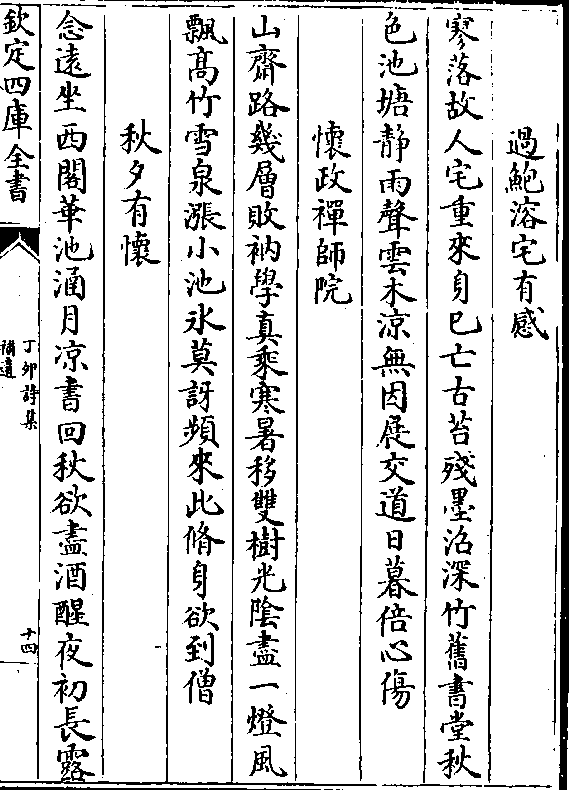 過鮑溶宅有感
寥落故人宅重來身已亡古苔殘墨沼深竹舊書堂秋
色池塘静雨聲雲木涼無因展交道日暮倍心傷
懷政禪師院
山齋路幾層敗衲學真乘寒暑移雙樹光陰盡一燈風
飄高竹雪泉漲小池氷莫訝頻來此脩身欲到僧
秋夕有懷
念遠坐西閣華池涵月凉書回秋欲盡酒醒夜初長露
欽定四庫全書
丁卯詩集
補遺
十四